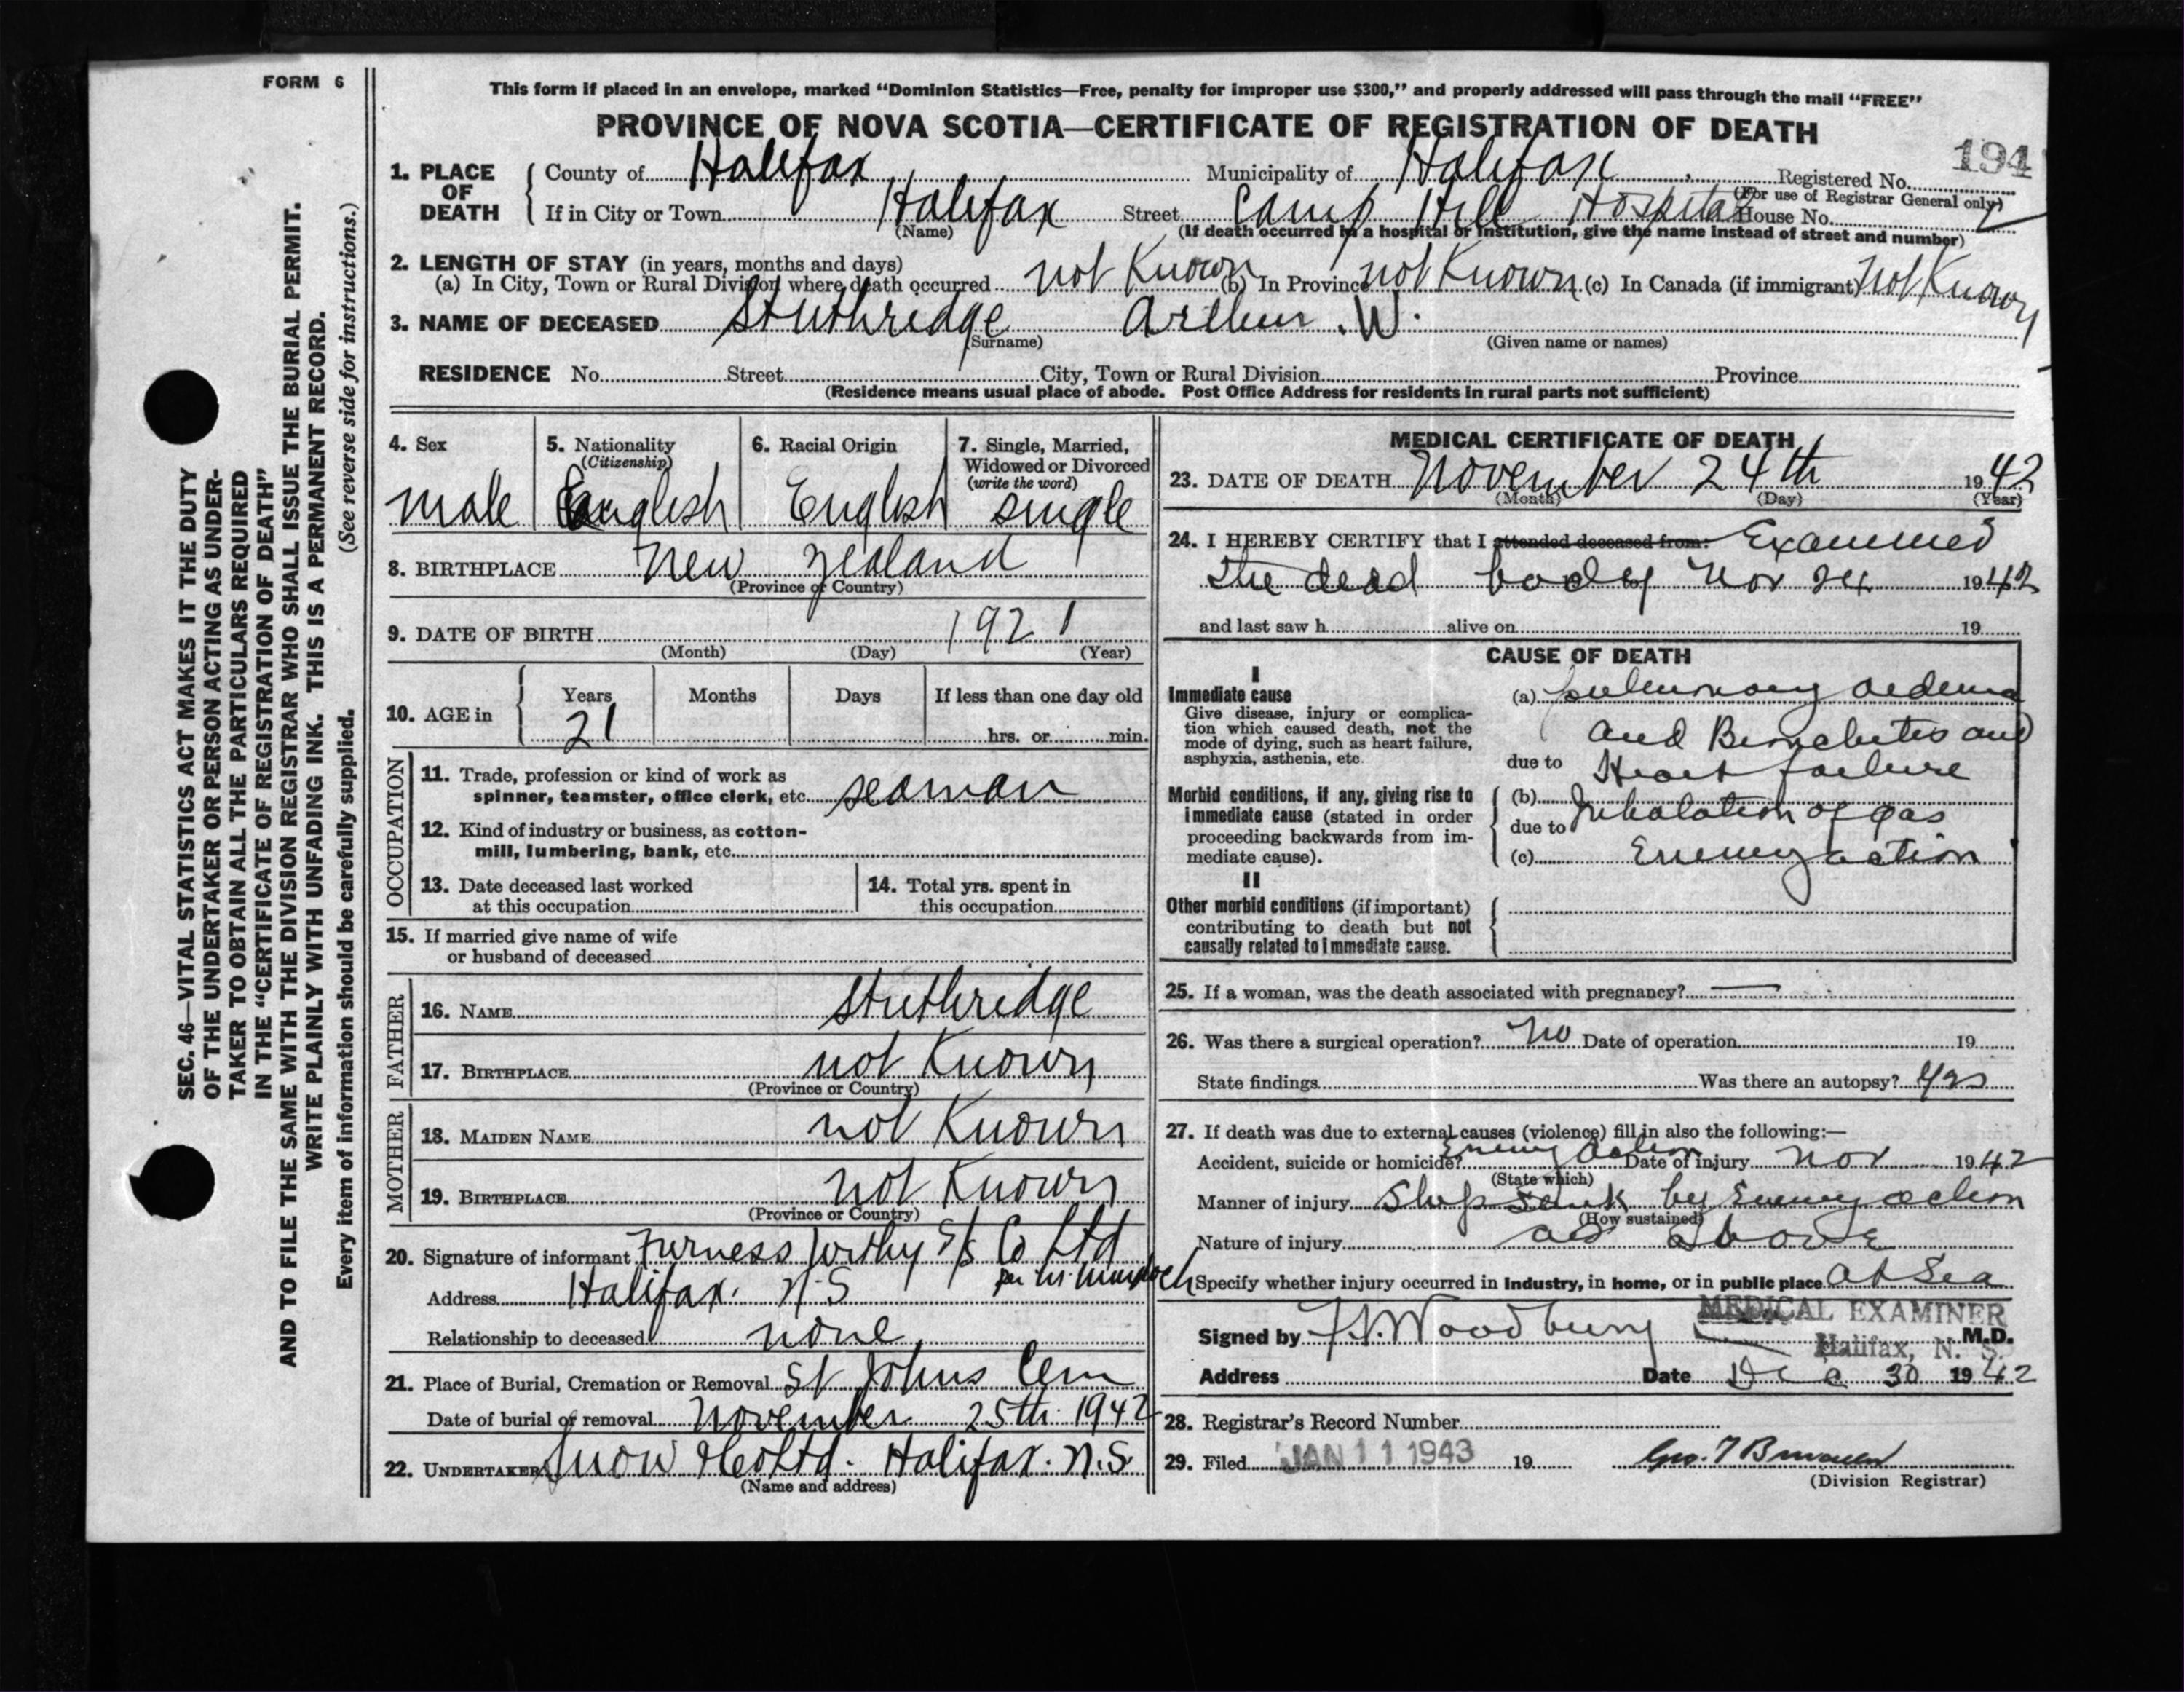 FORM 6
This form if placed in an envelope, marked "Dominion Statistics—Free, penalty for improper use $300," and properly addressed will pass through the mail "FREE"
PROVINCE OF NOVA SCOTIA—CERTIFICATE OF REGISTRATION OF DEATH
194
1. PLACE OF DEATH { County of Halifax Municipality of Halifax Registered No.
(For use of Registrar General only)
If in City or Town Halifax Street Camp Hill Hospital House No.
(Name) (If death occurred in a hospital or institution, give the name instead of street and number)
2. LENGTH OF STAY (in years, months and days)
(a) In City, Town or Rural Division where death occurred not Known (b) In Province not Known (c) In Canada (if immigrant) not Known
3. NAME OF DECEASED Stuthridge Arthur . W.
(Surname) (Given name or names)
RESIDENCE No. Street City, Town or Rural Division Province
(Residence means usual place of abode. Post Office Address for residents in rural parts not sufficient)
4. Sex male
5. Nationality (Citizenship) English
6. Racial Origin English
7. Single, Married, Widowed or Divorced (write the word) single
8. BIRTHPLACE New Zealand
(Province or Country)
9. DATE OF BIRTH 1921
(Month) (Day) (Year)
10. AGE in { Years Months Days If less than one day old
21 hrs. or min.
OCCUPATION
11. Trade, profession or kind of work as
spinner, teamster, office clerk, etc. seaman
12. Kind of industry or business, as cotton-
mill, lumbering, bank, etc.
13. Date deceased last worked
at this occupation
14. Total yrs. spent in
this occupation
15. If married give name of wife
or husband of deceased
FATHER
16. NAME Stuthridge
17. BIRTHPLACE not Known
(Province or Country)
MOTHER
18. MAIDEN NAME not Known
19. BIRTHPLACE not Known
(Province or Country)
20. Signature of informant Furness Withy S/S Co Ltd
per M Murdoch
Address Halifax. N.S
Relationship to deceased none
21. Place of Burial, Cremation or Removal St Johns Cem
Date of burial or removal November 25th 1942
22. UNDERTAKER Snow & Co Ltd. Halifax. N.S.
(Name and address)
MEDICAL CERTIFICATE OF DEATH
23. DATE OF DEATH November 24th 1942
(Month) (Day) (Year)
24. I HEREBY CERTIFY that I attended deceased from: Examined
the dead body Nov 24 1942
and last saw h alive on 19
CAUSE OF DEATH
I
Immediate cause
Give disease, injury or complica-
tion which caused death, not the
mode of dying, such as heart failure,
asphyxia, asthenia, etc.
(a) pulmonary oedema
and Bronchitis and
due to Heart failure
Morbid conditions, if any, giving rise to
immediate cause (stated in order
proceeding backwards from im-
mediate cause).
(b)
due to Inhalation of gas
(c) Enemy action
II
Other morbid conditions (if important)
contributing to death but not
causally related to immediate cause.
25. If a woman, was the death associated with pregnancy? —
26. Was there a surgical operation? No Date of operation 19
State findings Was there an autopsy? yes
27. If death was due to external causes (violence) fill in also the following:—
Accident, suicide or homicide? Enemy Action Date of injury Nov 1942
(State which)
Manner of injury Ship sunk by Enemy action
(How sustained)
Nature of injury as above
Specify whether injury occurred in industry, in home, or in public place at Sea
MEDICAL EXAMINER
Signed by Woodbury M.D.
Halifax, N. S.
Address Date Dec 30 1942
28. Registrar's Record Number
29. Filed JAN 11 1943 19
(Division Registrar)
SEC. 46—VITAL STATISTICS ACT MAKES IT THE DUTY
OF THE UNDERTAKER OR PERSON ACTING AS UNDER-
TAKER TO OBTAIN ALL THE PARTICULARS REQUIRED
IN THE "CERTIFICATE OF REGISTRATION OF DEATH"
AND TO FILE THE SAME WITH THE DIVISION REGISTRAR WHO SHALL ISSUE THE BURIAL PERMIT.
WRITE PLAINLY WITH UNFADING INK. THIS IS A PERMANENT RECORD.
Every item of information should be carefully supplied. (See reverse side for instructions.)